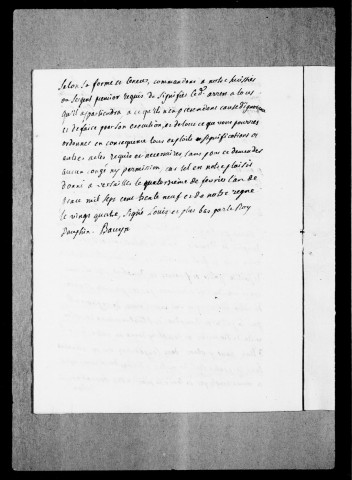 Selon sa forme et teneur, commandons a notre huissier
ou sergent premier requis de signifier led. arrest a tous
qu'il appartiendra a ce qu'ils n'en pretendent cause d'ignorance
et de faire pour son execution, et de tout ce que vous pourres
ordonner en consequence tous exploits significations et
autres actes requis et necessaires sans pour ce demander
aucun congé ny permission, car tel est notre plaisir
donné a versaille le quatorzieme de fevrier l'an de
grace mil sept cent trente neuf et de notre regne
le vingt quatre, signé Louis et plus bas par le Roy
Dauphin. Bauyn